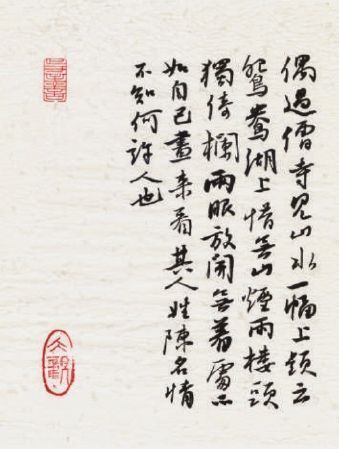 偶過僧寺見山水一幅上題云
鴛鴦湖上惜無山煙雨樓頭
獨倚欄兩眼放開無着處不
如自己畫来看其人姓陳名情
不知何許人也